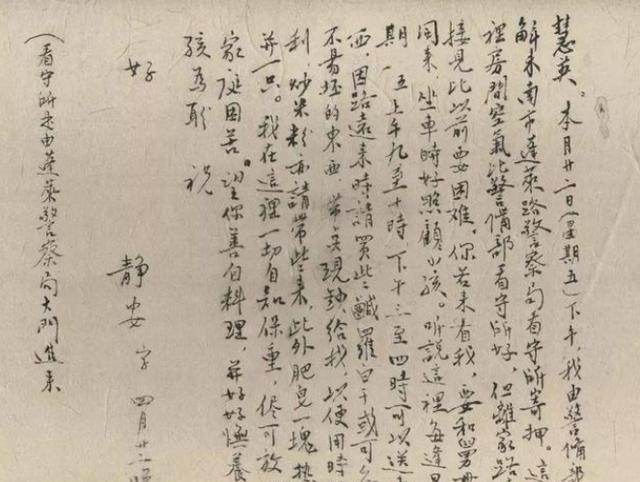 慧英。本月廿二日（星期五）下午，我由警備部
解来南市蓬萊路警察局看守所寄押。這
裡房間空氣比警備部看守所好，但離家路
接見比以前要困难。你若来看我，要和
同来，坐車時好照顧小孩。听説這裡每逢星
期一、五上午九至十時下午三至四時可以送
西，因路遠来時請買些鹹蘿白干或可
不易坯的東西，带点現鈔給我，以便用時
利，炒米粉亦請带些来，此外肥皂一塊热
并一只。我在這裡一切自知保重，侭可放
家庭困苦。望你善自料理，并好好撫養
孩為耿　祝
好
静安字　四月廿二
（看守所是由蓬萊警察局大門進来